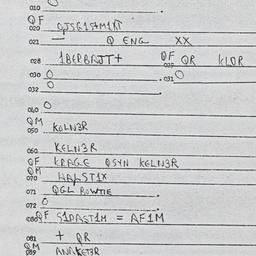 010 O
QF
020 QJSG1S+M1XT
021 Q ENG XX
028 1BERBAJT+ QF 029 QR KLQR
030 O . 031 O
032 O
040 O
QM
050 KOLN3R
060 KELN3R
QF KRAGE QSYN KELN3R
QM
070 HALST1X
071 QGL ROWTIE
072 O
080 QF S1DAST1M = AF1M
081 + QR
QM
089 ANAKET3R